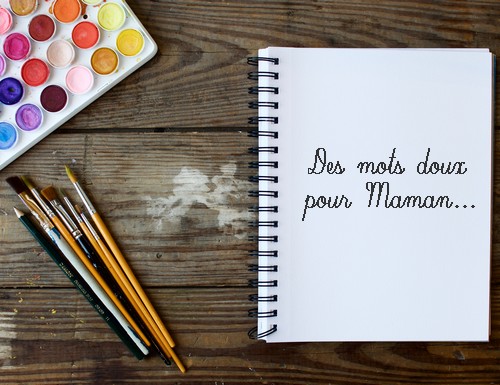 Des mots doux
pour Maman...